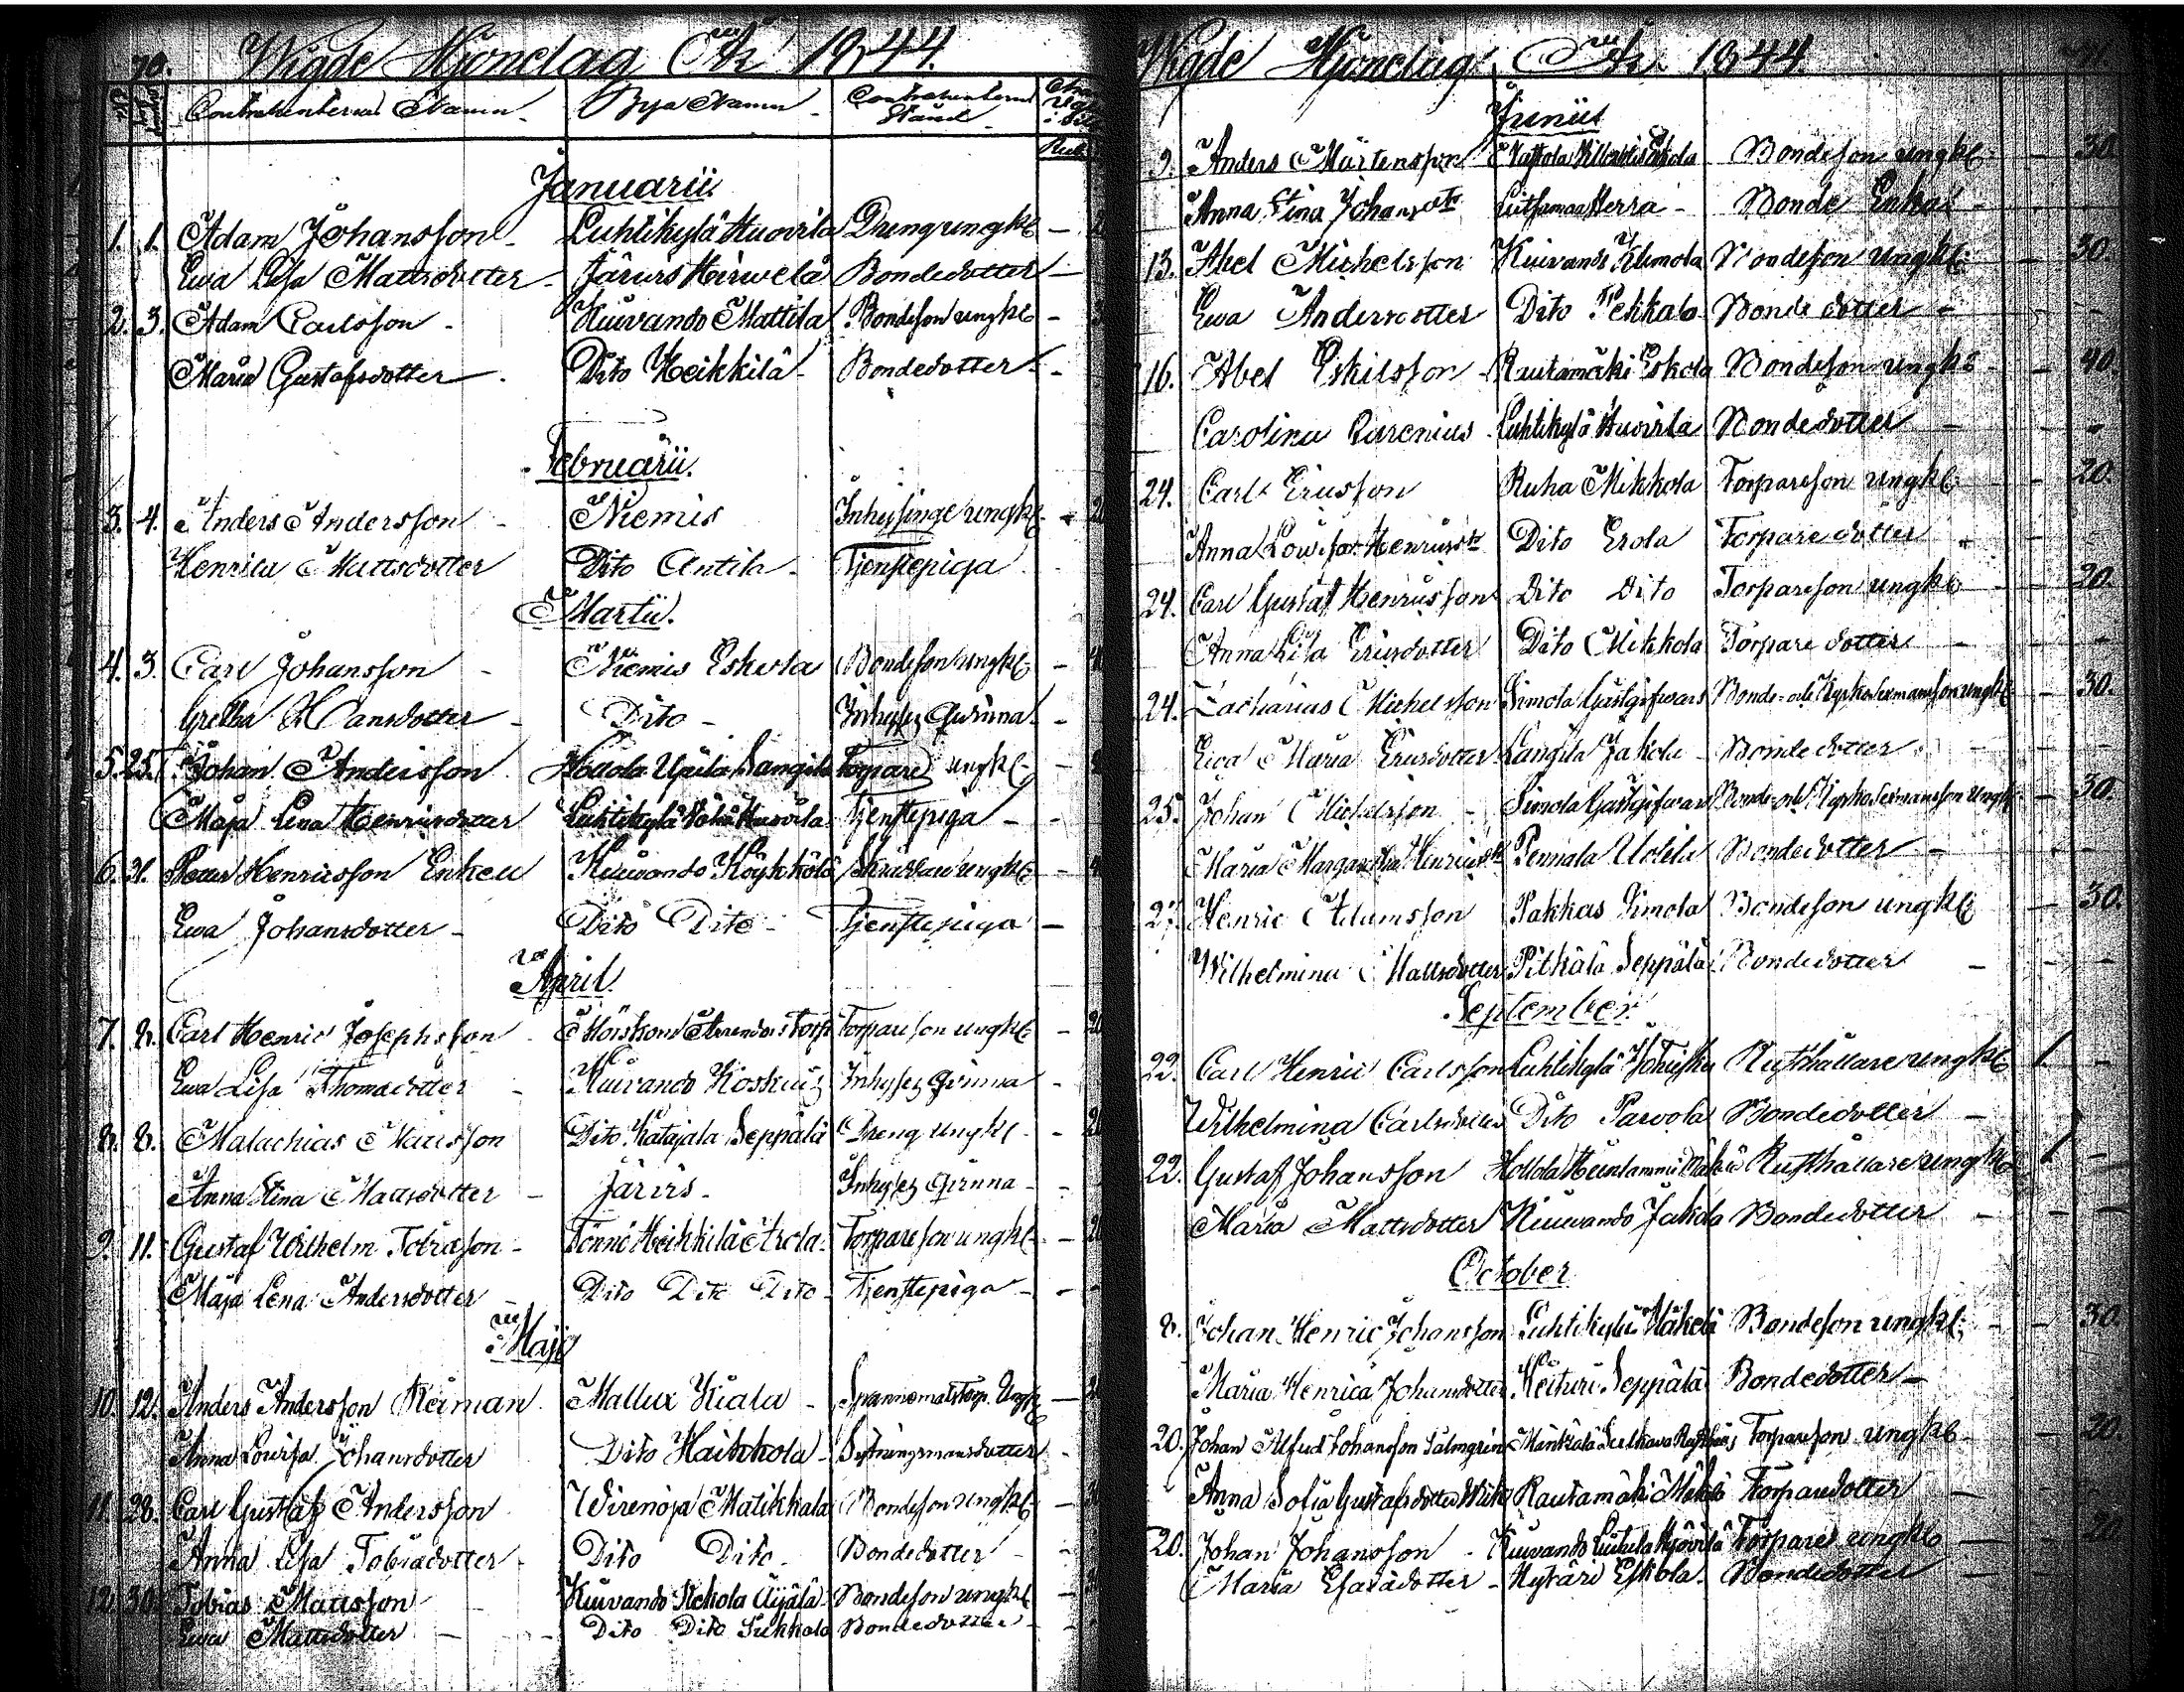 70.
Wigde Hjonelag År 1844.
Contrahenternas Namn Bya Namn Contrahenternas Stånd
Januarii
1. 1. Adam Johansson Luhtikylä Huovila Dreng ungkl
Ewa Lisa Mattsdotter Järvis Hirwelä Bondedotter
2. 3. Adam Carlsson Kuivando Mattila Bondeson ungkl
Maria Gustafsdotter Dito Heikkilä Bondedotter
Februarii.
3. 4. Anders Andersson Niemis Inhysinge ungkl
Henrica Mattsdotter Dito Antila Tjenstepiga
Martii.
4. 3. Carl Johansson Niemis Eskola Bondeson ungkl
Gretha Hansdotter Dito Inhyses Qvinna
5. 25. Johan Andersson Hollola Upila Langila Torpare ungkl
Maja Lena Henricsdotter Luhtikylä Huovila Tjenstepiga
6. 31. Petter Henricsson Enkeu Kuivando Köykkölä Skräddare ungkl
Ewa Johansdotter Dito Dito Tjenstepiga
April
7. 8. Carl Henric Josephsson Torpareson ungkl
Ewa Lisa Thomadotter Kuivando Koskuis Inhyses Qvinna
8. 8. Malachias Mattsson Dito Katajala Seppälä Dreng ungkl
Anna Stina Mattsdotter Järvis Inhyses Qvinna
9. 11. Gustaf Wilhelm Tobiasson Tönnö Heikkilä Arola Torpareson ungkl
Maja Lena Andersdotter Dito Dito Dito Tjenstepiga
Maji
10. 12. Anders Andersson Reiman Mallux Kiala Ungk
Anna Lovisa Johansdotter Dito Haikkola
11. 28. Carl Gustaf Andersson Wirenoja Matikkala Bondeson ungkl
Anna Lisa Tobiadotter Dito Dito Bondedotter
12. 30. Tobias Mattsson Kuivando Kekola Äijälä Bondeson ungkl
Ewa Mattsdotter Dito Dito Bondedotter
Wigde Hjonelag År 1844.
71.
Junii
9. Anders Mårtensson Bondeson ungkl 30
Anna Stina Johansdtr Luthmaa Herra Bonde Enka
13. Abel Michelsson Kuivando Klemola Bondeson ungkl 30.
Ewa Andersdotter Dito Pekkala Bonde dotter
16. Abel Eskilsson Rautamäki Eskola Bondeson ungkl 40.
Carolina Carenius Luhtikylä Huovila Bondedotter
24. Carl Ericsson Ruha Mikkola Torpareson ungkl 20.
Anna Lovisa Henricsdtr Dito Erola Torpare dotter
24. Carl Gustaf Henricsson Dito Dito Torpareson ungkl 20.
Anna Lisa Ericsdotter Dito Mikkola Torpare dotter
24. Zacharias Michelsson Simola Gästgifvars Bonde- och Kyrkovärmansson ungkl 30.
Eva Maria Ericsdotter Langila Jakola Bondedotter
25. Johan Michelsson Simola Gästgifvars 30.
Maria Margaretha Henricsdtr Pennala Uotila Bondedotter
27. Henric Adamsson Pakkas Simola Bondeson ungkl 30.
Wilhelmina Mattsdotter Pitkälä Seppälä Bondedotter
September
22. Carl Henric Carlsson Luhtikylä Rusthållare ungkl 1
Wilhelmina Carlsdotter Dito Parvola Bondedotter
22. Gustaf Johansson Rusthållare ungkl 1
Maria Mattsdotter Kuivando Jakola Bondedotter
October
8. Johan Henric Johansson Luhtikylä Mäkelä Bondeson ungkl 30.
Maria Henrica Johansdotter Keituri Seppälä Bondedotter
20. Johan Alfred Johansson Salmgrén Torpareson ungkl 20.
Anna Sofia Gustafsdotter Rautamäki Torparedotter
20. Johan Johansson Torpare ungkl
Maria Esaiadotter Hytäri Eskola Bondedotter